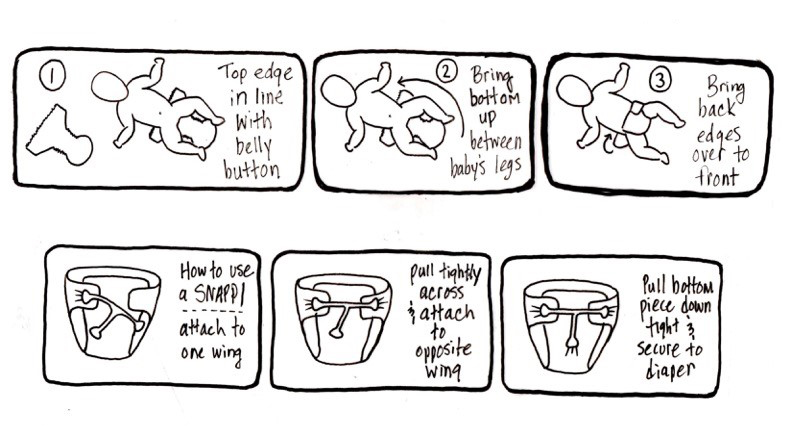 1
Top edge
in line
with
belly
button
2
Bring
bottom
up
between
baby's legs
3
Bring
back
edges
over to
front
How to use
a SNAPPI
attach to
one wing
pull tightly
across
& attach
to
opposite
wing
Pull bottom
piece down
tight &
secure to
diaper